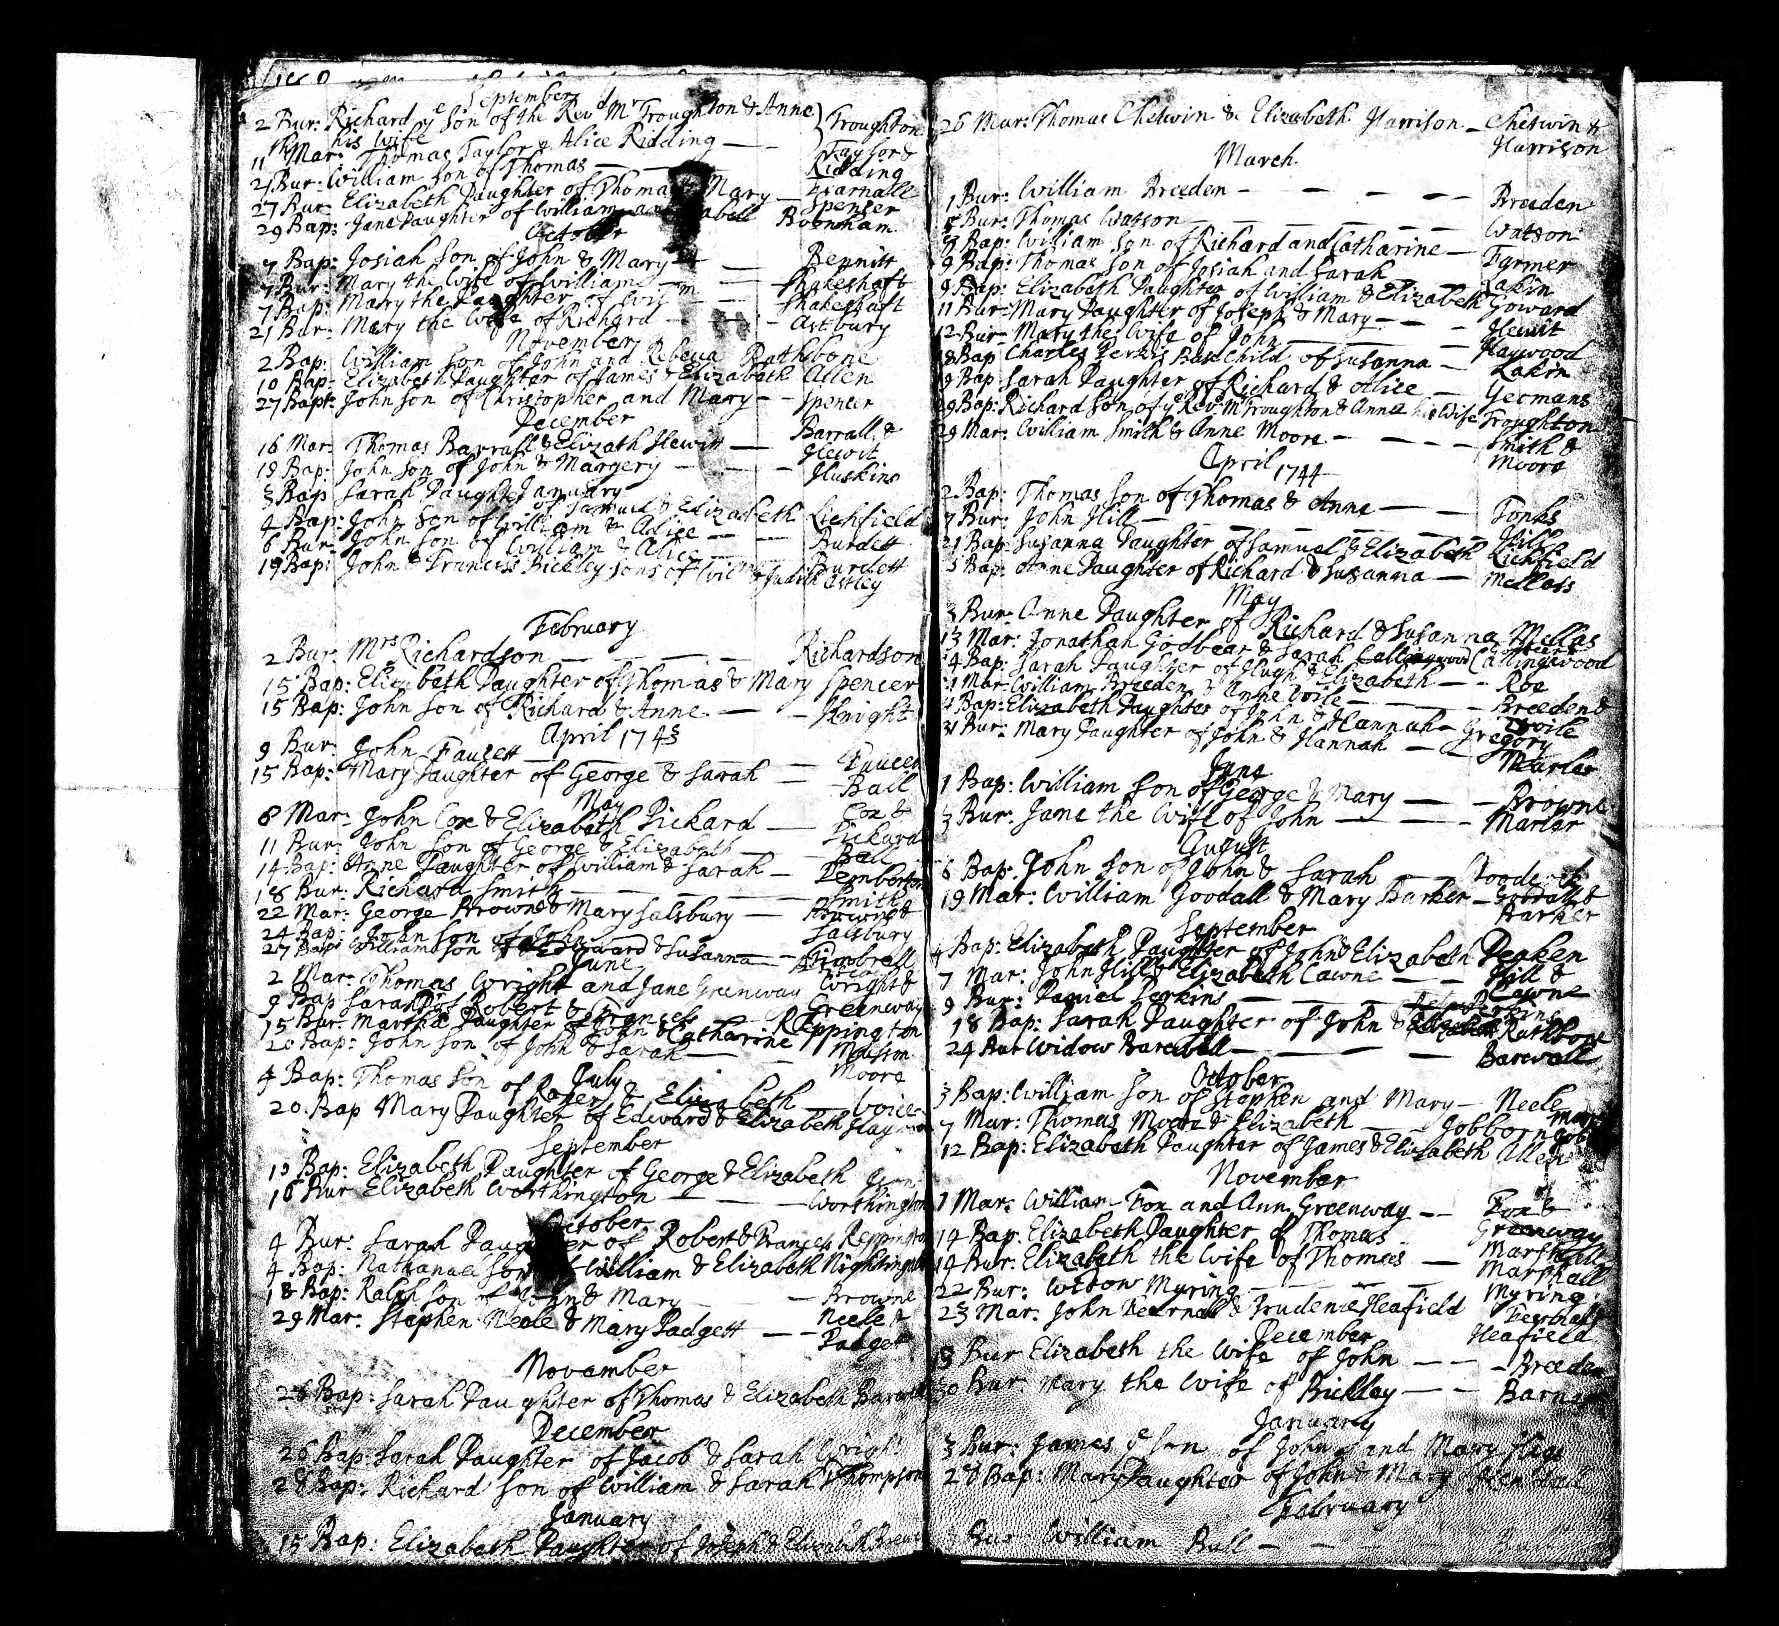 September
2 Bur: Richard ye Son of the Revd Mr Troughton & Anne
his wife Troughton
Mar: Thomas Taylor & Alice Ridding — — Taylor &
Ridding
11 Bur: William Son of Thomas — — Yarnall
27 Bur: Elizabeth Daughter of Thomas & Mary — Spencer
29 Bap: Jane Daughter of William Boonham
October
7 Bap: Josiah Son of John & Mary — — Bennitt
7 Bur: Mary the Wife of William — — Shakeshaft
7 Bap: Mary the Daughter of Wm — — Shakeshaft
21 Bur: Mary the Wife of Richard — — Astbury
November
2 Bap: William Son of John and Rebeca Rathbone
10 Bap: Elizabeth Daughter of James & Elizabeth Allen
27 Bapt: John Son of Christopher and Mary — — Spencer
December
16 Mar: Thomas Barrall & Elizath Hewitt — Barrall &
Hewit
19 Bap: John Son of John & Margery — — Huskins
January
3 Bap Sarah Daughter of Samuel & Elizabeth Lichfield
4 Bap: John Son of William & Alice — — Burdett
6 Bur: John Son of William & Alice — — Burdett
19 Bap: John & Francis Bickley Sons of Willm & Judith Astley
February
2 Bur: Mrs Richardson — — — — Richardson
15 Bap: Elizabeth Daughter of Thomas & Mary Spencer
15 Bap: John Son of Richard & Anne — — Knight
April 1743
9 Bur: John Faucett — — — Faucett
15 Bap: Mary Daughter of George & Sarah — Ball
May
8 Mar: John Cox & Elizabeth Pickard — Cox &
Pickard
11 Bur: John Son of George & Elizabeth — Ball
14 Bap: Anne Daughter of William & Sarah — Pemberton
18 Bur: Richard Smith — — — Smith
22 Mar: George Browne & Mary Salsbury — Browne &
Salsbury
24 Bap: John Son of John
27 Bap: William Son of Edward & Susanna —
June
2 Mar: Thomas Wright and Jane Greenway Wright &
Greenway
9 Bap Sarah Dr of Robert & Frances — Reppington
15 Bur: Martha Daughter of John & Catharine
20 Bap: John Son of John & Sarah — Moore
July
4 Bap: Thomas Son of & Elizabeth — Voice
20 Bap Mary Daughter of Edward & Elizabeth
September
Bap: Elizabeth Daughter of George & Elizabeth
18 Bur Elizabeth Worthington — — — Worthington
October
4 Bur: Sarah Daughter of Robert & Frances Reppington
4 Bap: Nathanael Son of William & Elizabeth Nightingale
18 Bap: Ralph Son of John & Mary — — Browne
29 Mar: Stephen Neale & Mary Padgett — — Neele &
Padget
November
28 Bap: Sarah Daughter of Thomas & Elizabeth
December
26 Bap: Sarah Daughter of Jacob & Sarah Wright
28 Bap: Richard Son of William & Sarah Thompson
January
15 Bap: Elizabeth Daughter of Joseph & Elizabeth
26 Mar: Thomas Chetwin & Elizabeth Harrison — Chetwin &
Harrison
March
1 Bur: William Breeden — — — — Breeden
8 Bur: Thomas Watson — — — — Watson
Bap: William Son of Richard and Catharine — Farmer
9 Bap: Thomas Son of Josiah and Sarah — Lakin
9 Bap: Elizabeth Daughter of William & Elizabeth Goward
11 Bur: Mary Daughter of Joseph & Mary — — Hewit
12 Bur: Mary the Wife of John — — Haywood
18 Bap Charles Base Child of Susanna — Lakin
19 Bap Sarah Daughter of Richard & Alice — Yeomans
29 Bap: Richard Son of ye Revd Mr Troughton & Anne his Wife Troughton
29 Mar: William Smith & Anne Moore — — — Smith &
Moore
April 1744
2 Bap: Thomas Son of Thomas & Anne — — Tonks
7 Bur: John Hill — — — — Hill
21 Bap: Susanna Daughter of Samuel & Elizabeth Lichfield
Bap: Anne Daughter of Richard & Susanna — Mellass
May
3 Bur: Anne Daughter of Richard & Susanna Mellas
13 Mar: Jonathan Godbear & Sarah Callingwood
14 Bap: Sarah Daughter of Hugh & Elizabeth — — Roe
Mar: William Breeden & Anne Voile — Breeden &
Voile
Bap: Elizabeth Daughter of John & Hannah — Gregory
31 Bur: Mary Daughter of John & Hannah — Marler
June
1 Bap: William Son of George & Mary — — Browne
3 Bur: Jane the Wife of John — — — Marler
August
6 Bap: John Son of John & Sarah —
19 Mar: William Goodall & Mary Barker — Goodall &
Barker
September
4 Bap: Elizabeth Daughter of John & Elizabeth Deaken
7 Mar: John Hill & Elizabeth Cawne — — Hill &
Cawne
9 Bur: Daniel Perkins — — — Perkins
18 Bap: Sarah Daughter of John & Rathbone
24 Bur Widow Barewell — — — Barwall
October
3 Bap: William Son of Stephen and Mary — Neele
7 Mar: Thomas Moore & Elizabeth — — Jobborn
12 Bap: Elizabeth Daughter of James & Elizabeth Allen
November
1 Mar: William Fox and Ann Greenway — — Fox &
Greenway
14 Bap: Elizabeth Daughter of Thomas — Marshall
19 Bur: Elizabeth the Wife of Thomas — Marshall
22 Bur: Widow Myring — — — Myring
23 Mar: John & Prudence Heafield
Heafield
December
13 Bur Elizabeth the Wife of John — — — Breeden
30 Bur: Mary the Wife of Bickley — —
January
3 Bur: James ye Son of John and Mary
28 Bap: Mary Daughter of John & Mary
February
Bur William Ball — — —